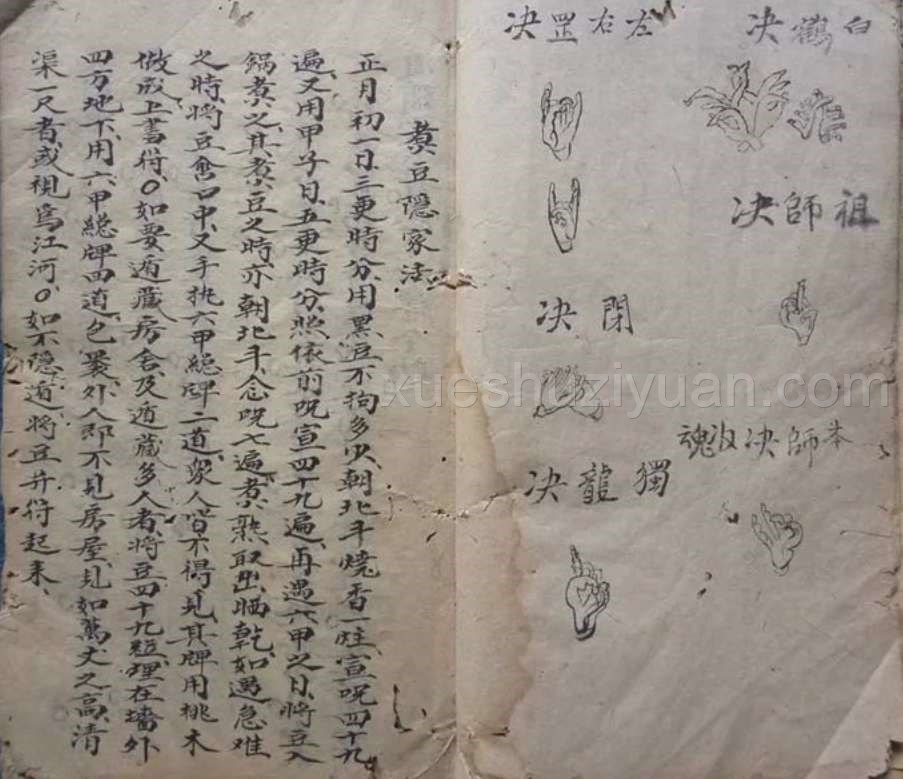 白鶴决
祖師决
本師决收魂
左右罡决
閉决
獨龍决
煑豆隱家法
正月初一日三更時分用黑豆不拘多少朝北斗燒香一炷宣咒四十九
遍又用甲子日五更時分照依前咒宣四十九遍再遇六甲之日將豆入
鍋煑之其煑豆之時亦朝北斗念咒七遍煑熟取出晒乾如遇急难
之時將豆含口中又手执六甲總牌二道衆人皆不得見其牌用桃木
做成上書符〇如要遁藏房舍及遁藏多人者將豆四十九粒埋在墻外
四方地下用六甲總牌四道包裹外人即不見房屋見如萬丈之高清
渠一尺者或視爲江河〇如不隱遁將豆并符起来
xueshuziyuan.com